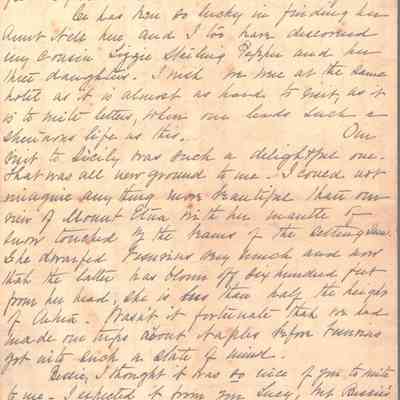 has been so lucky in finding her
Aunt Nell here and I too have discovered
my Cousin Lizzie Sterling Pepper and her
three daughters. I wish we were at the same
hotel as it is almost as hard to meet, as it
is to write letters, when one leads such a
strenuous life as this. Our
visit to Sicily was such a delightful one.
That was all new ground to me. I could not
imagine anything more beautiful than our
view of Mount Etna with her mantle of
snow touched by the beams of the setting sun.
She dwarfed Vesuvius very much and now
that the latter has blown off six hundred feet
from her head, she is less than half the height
of Aetna. Wasn't it fortunate that we had
made our trips about Naples before Vesuvius
got into such a state of mind.
Bessie, I thought it was so nice of you to write
to me. I expected it from you Lucy, but Bessie's